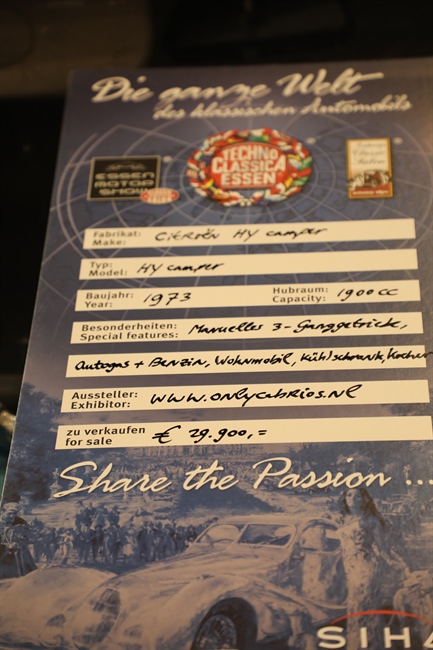 Die ganze Welt
des klassischen Automobils
TECHNO
CLASSICA
ESSEN
ESSEN
MOTOR
SHOW
Fabrikat:
Make:
CITROËN HY camper
Typ:
Model:
HY camper
Baujahr:
Year:
1973
Hubraum:
Capacity:
1900 cc
Besonderheiten:
Special features:
Manuelles 3-Ganggetriebe,
Autogas + Benzin, Wohnmobil, Kühlschrank, Kocher
Aussteller:
Exhibitor:
www.onlycabrios.nl
zu verkaufen
for sale
€ 29.900,=
Share the Passion ...
SIHA